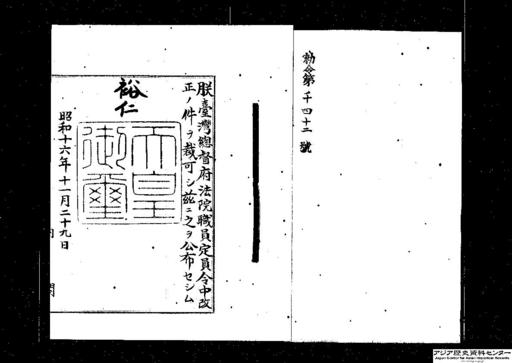 勅令第千四十二號
朕臺灣總督府法院職員定員令中改
正ノ件ヲ裁可シ茲ニ之ヲ公布セシム
裕仁
天皇御璽
昭和十六年十一月二十九日
アジア歴史資料センター
Japan Center for Asian Historical Records